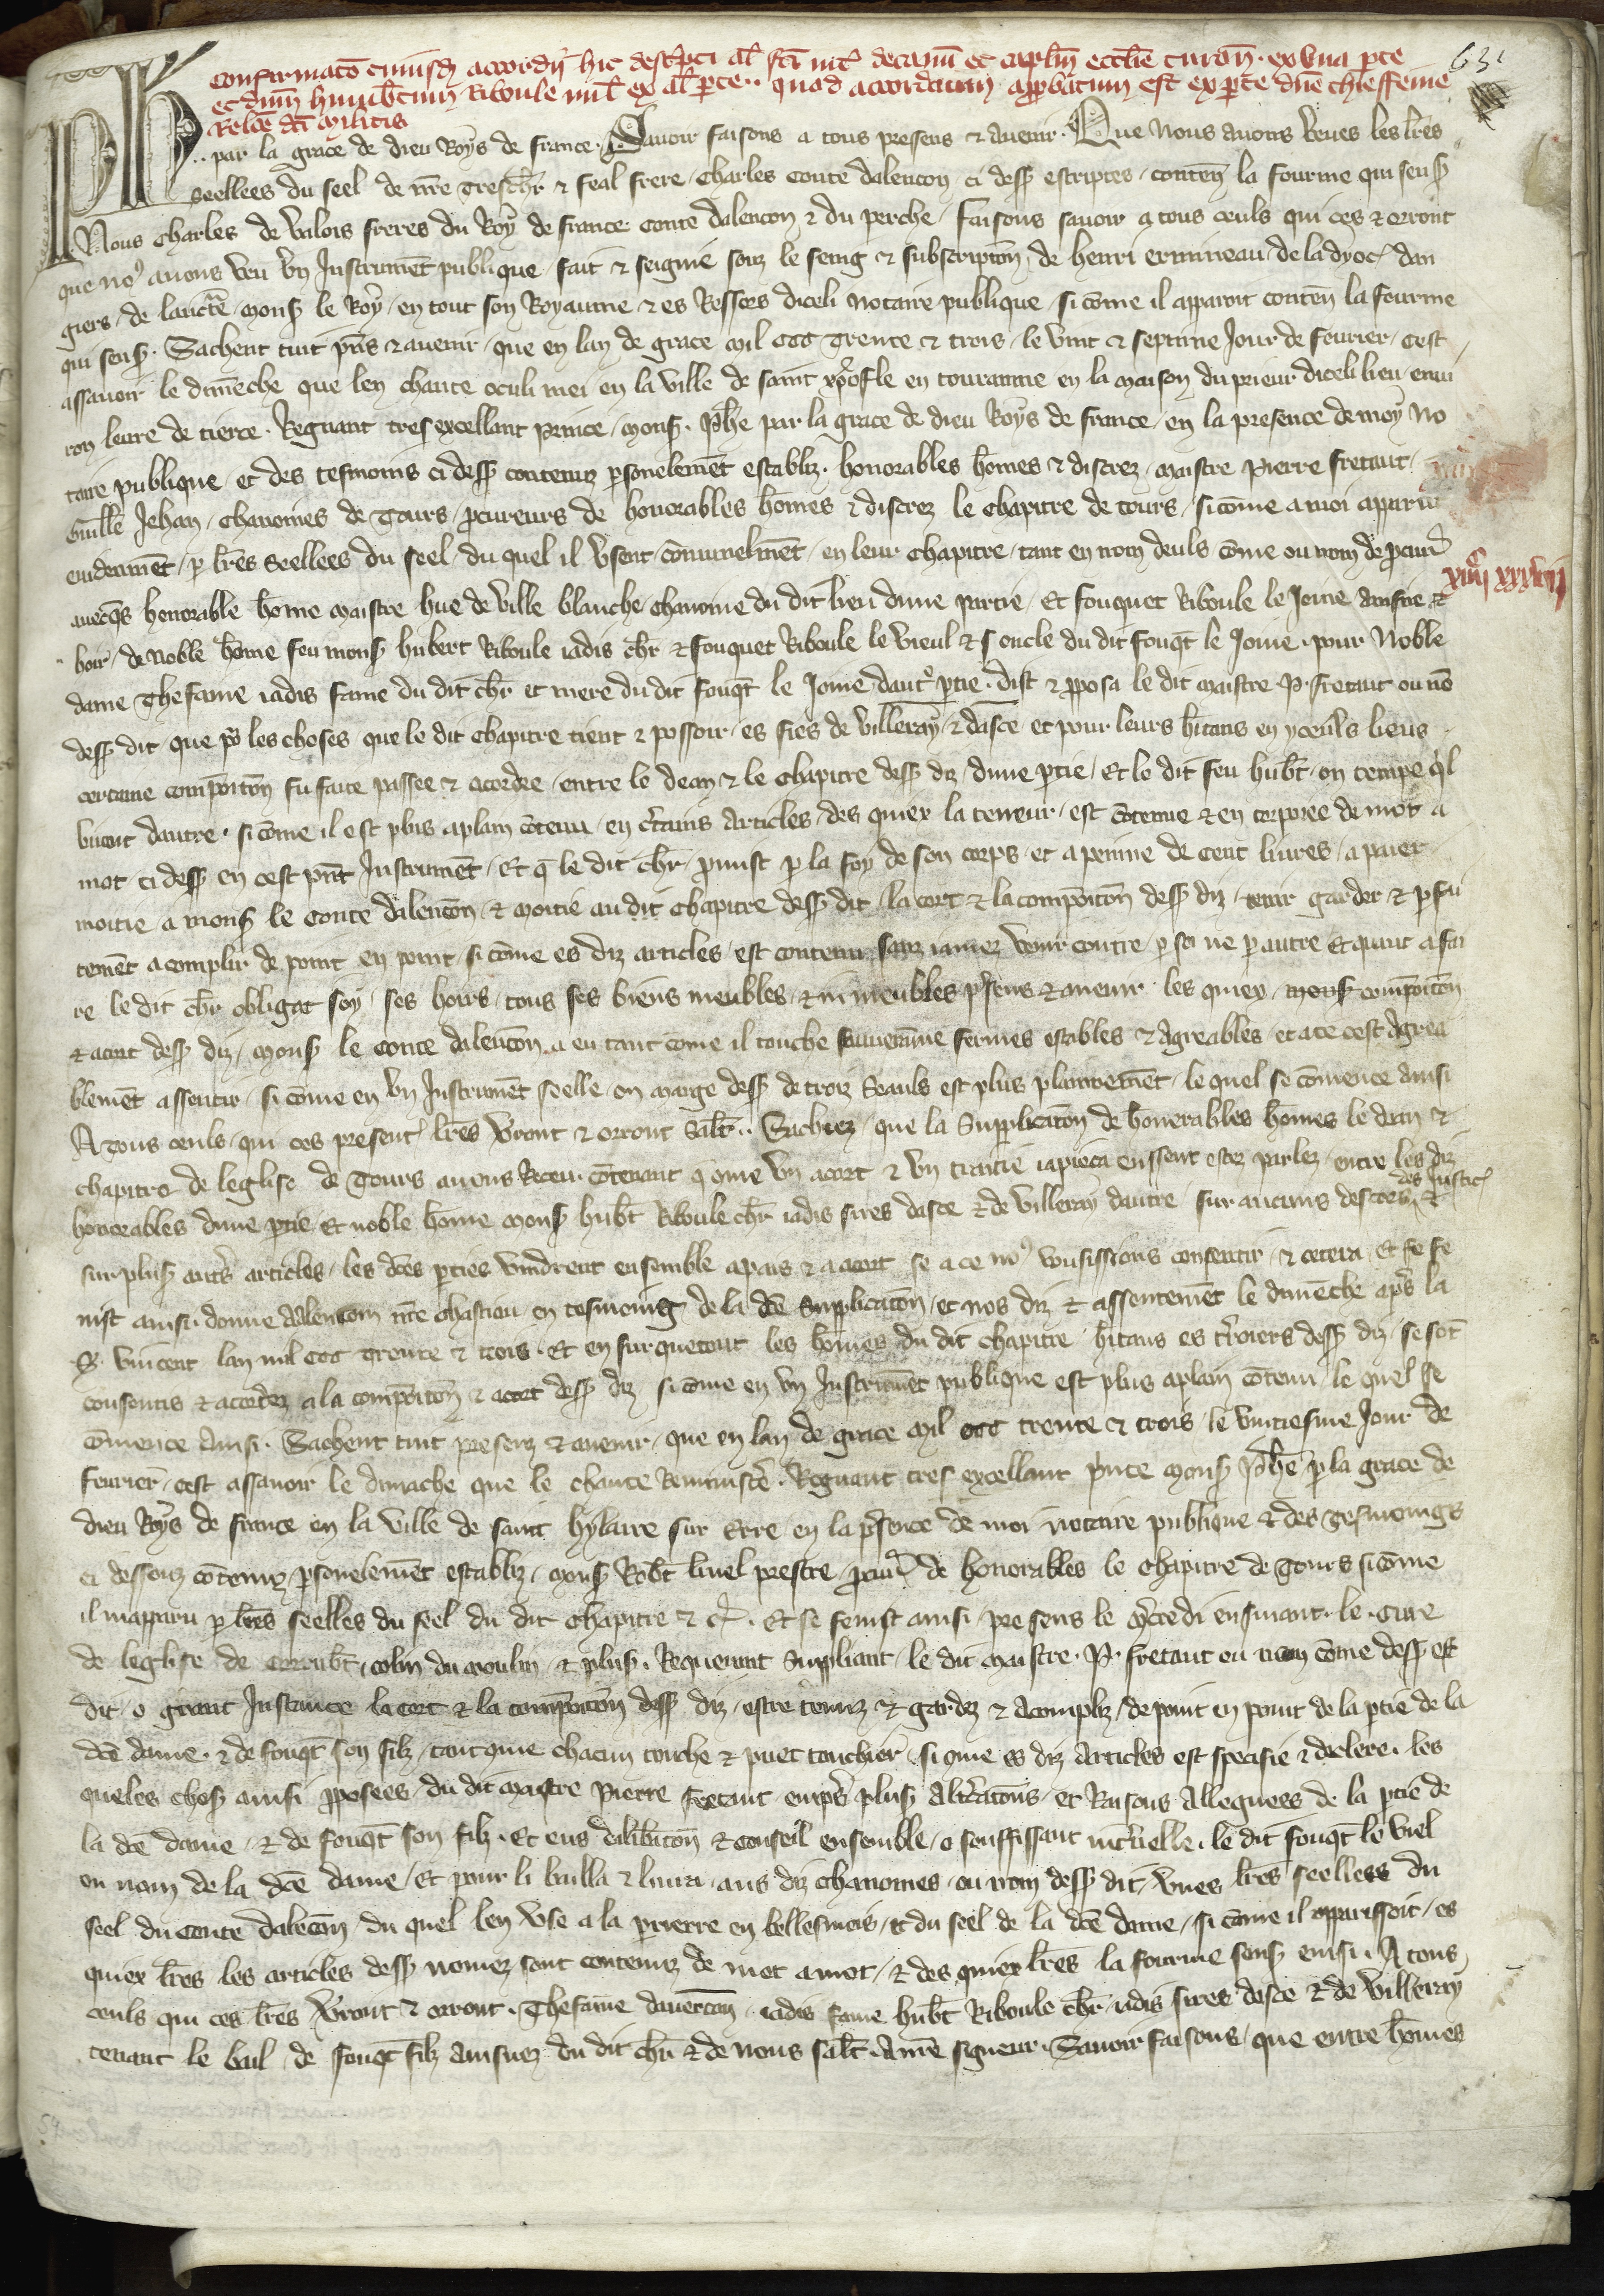 631
Confirmatō cuiusd accordi hic descpti al fci int decanū et caplm ecclie turoñ ex una pte
et dnm hubtum Riboule mil ex al pte quod accordum approbatum est ex pte dne thieffeme
Relce dci militis
Ph par la grace de dieu Roys de france Savoir faisons a tous presens & avenir Que nous avons veues les lres
seellees du seel de nre treschr & feal frere Charles conte dalencon ci dess escriptes conten la fourme qui sens
Nous Charles de Valois freres du Roy de france conte dalencon & du perche faisons savoir a tous ceuls qui ces & orront
que no9 avons veu vn Instrumēt publique fait & seignie souz le seing & subscripton de henri ermineau de la dyoc dan
giers de lauctē mons le Roy en tout son Royaume & es Ressors diceli notaire publique si cōme il apparoit conten la fourme
qui sens Sachent tuit pns & avenir que en lan de grace mil ccc trente & trois le vint & septime Jour de fevrier cest
assavoir le dimēche que len chante oculi mei en la ville de saint xpofle en touranne en la maison du prieur diceli lieu envi
ron leure de tierce Regnant tres excellant prince mons Phē par la grace de dieu Roys de france en la presence de moy no
taire publique et des tesmoins ci dess contenuz psonelemēt establiz honorables hōmes & discrez maistre Pierre fretaut
Guille Jehan chanoines de Tours pcureurs de honorables hōmes & discrez le chapitre de tours si cōme a moi apparut
evidenmēt p lres seellees du seel du quel il vsent cōmunelmēt en leur chapitre tant en nom deuls cōme ou nom de pcur
avecqs honorable hōme maistre hue de ville blanche chanoine du dit lieu dune partie Et fouquet Riboule le Jeine ainsne &
xiiij xxxviij
hoir de noble hōme feu mons hubert Riboule iadis chr & fouquet Riboule le vieul & oncle du dit fouqt le Jonie pour noble
dame Thefame iadis fame du dit chr et mere du dit fouqt le Jonie dautr ptie dist & pposa le dit maistre P fretaut ou nō
dess dit que po les choses que le dit chapitre tient & possoir es fies de villeray & dasce et pour leurs hitans en yceuls lieus
certaine compoiton fu faite passee & acordee entre le dean & le chapitre dess diz dune ptie Et le dit feu hubt ou temps ql
vivoit dautre si cōme il est plus aplain cōtenu en ctains articles des quiex la teneur est cōtenue & en corporee de mot a
mot ci dess en cest pnt Instrumēt Et q le dit chr pmist p la foy de son corps et a penne de cent livres a paier
moitie a mons le conte dalencon & moitie au dit chapitre dess dit la cort & la compoiton dess diz tenir garder & pfai
temēt acomplir de point en point si cōme es diz articles est contenu sanz iamez venir contre p soi ne p autre Et quant a fai
re le dit chr obligat soy ses hoirs tous ses biens meubles & nmeubles psens & avenir les quiex compoiton
& acort dess diz mons le conte dalencon a en tant cōme il touche fermes estables & agreables et a ce cest agrea
blemēt assentir si cōme en vn Instrumēt seelle en marge dess de trois Seauls est plus plainnemēt le quel se cōmence ainsi
A tous ceuls qui ces present lres vront & orront Salt Sachiez que la Supplicaton de honorables hōmes le dean &
chapitre de leglise de Tours avons Receu cōtenant cōme vn acort & vn traitie iapieca eussent estez parlez entre les diz
honorables dune ptie et noble hōme mons hubt Riboule chr iadis sires dasce & de villeray dautre sur aucuns descors des Justic &
sur plus autrs articles les dces pties vindrent ensemble apais & a acort se a ce no9 vousissions consentir & cetera Et se fe
nist ainsi donne a alencom nre chastiau en tesmoing de la dce Supplicaton et nos diz & assentemēt le dimēche aps la
S vincent lan mil ccc trente & trois Et en surquetout les hōmes du dit chapitre hitans es troiers dess diz se sōt
consentis & acordez a la compoiton & acort dess diz si cōme en vn Instrumēt publique est plus aplain cōtenu le quel se
cōmence ainsi Sachent tuit presenz & avenir que en lan de grace mil ccc trente & trois le vintiesme Jour de
fevrier cest assavoir le dimache que le chante Reminiscē Regnant tres excellant pnce mons Phē p la grace de
dieu Roys de france en la ville de saint hylaire sur Erre en la psence de moi notaire publique & des tesmoings
ci dessouz cōtenuz psonelemēt establiz mons Robt livel prestre pcur de honorables le chapitre de Tours si cōme
il mapparu p lres seelles du seel du dit chapitre & c Et se fenist ainsi presens le mcredi ensivant le cure
de leglise de corrubt colin du moulin & plus Requerant Suppliant le dit maistre P fretaut ou nom cōme dess est
dit o grant Instance la cort & la compoiton dess diz estre tenuz & gardez & acompliz de point en point de la ptie de la
dce dame & de fouqt son filz tant que chacun touche & puet touchier si cōme es diz articles est specifie & declere les
queles chos ainsi pposees du dit maistre Pierre fretaut enaps plus altraccons et Raisons alleguees de la ptie de
la dce dame & de fouqt son filz Et eus delibaton & conseil ensemble o souffissant mcruelle le dit fouqt le viel
ou nom de la dce dame Et pour li bailla & livra aus diz chanoines ou nom dess dit vnes lres seellees du
seel du conte dalencon du quel len vse a la prierre en bellesmois & du seel de la dce dame si cōme il apparissoit es
quiex lres les articles dess nomez sont contenuz de mot a mot & des quiex lres la fourme sens ensi A tous
ceuls qui ces lres vront & orront Thefame davercon iadis fame hubt Riboule chr iadis sires dasce & de villeray
tenant le bail de fouqt filz ainsnez du dit chr & de nous salt A nre signeur Savoir faisons que entre hōmes